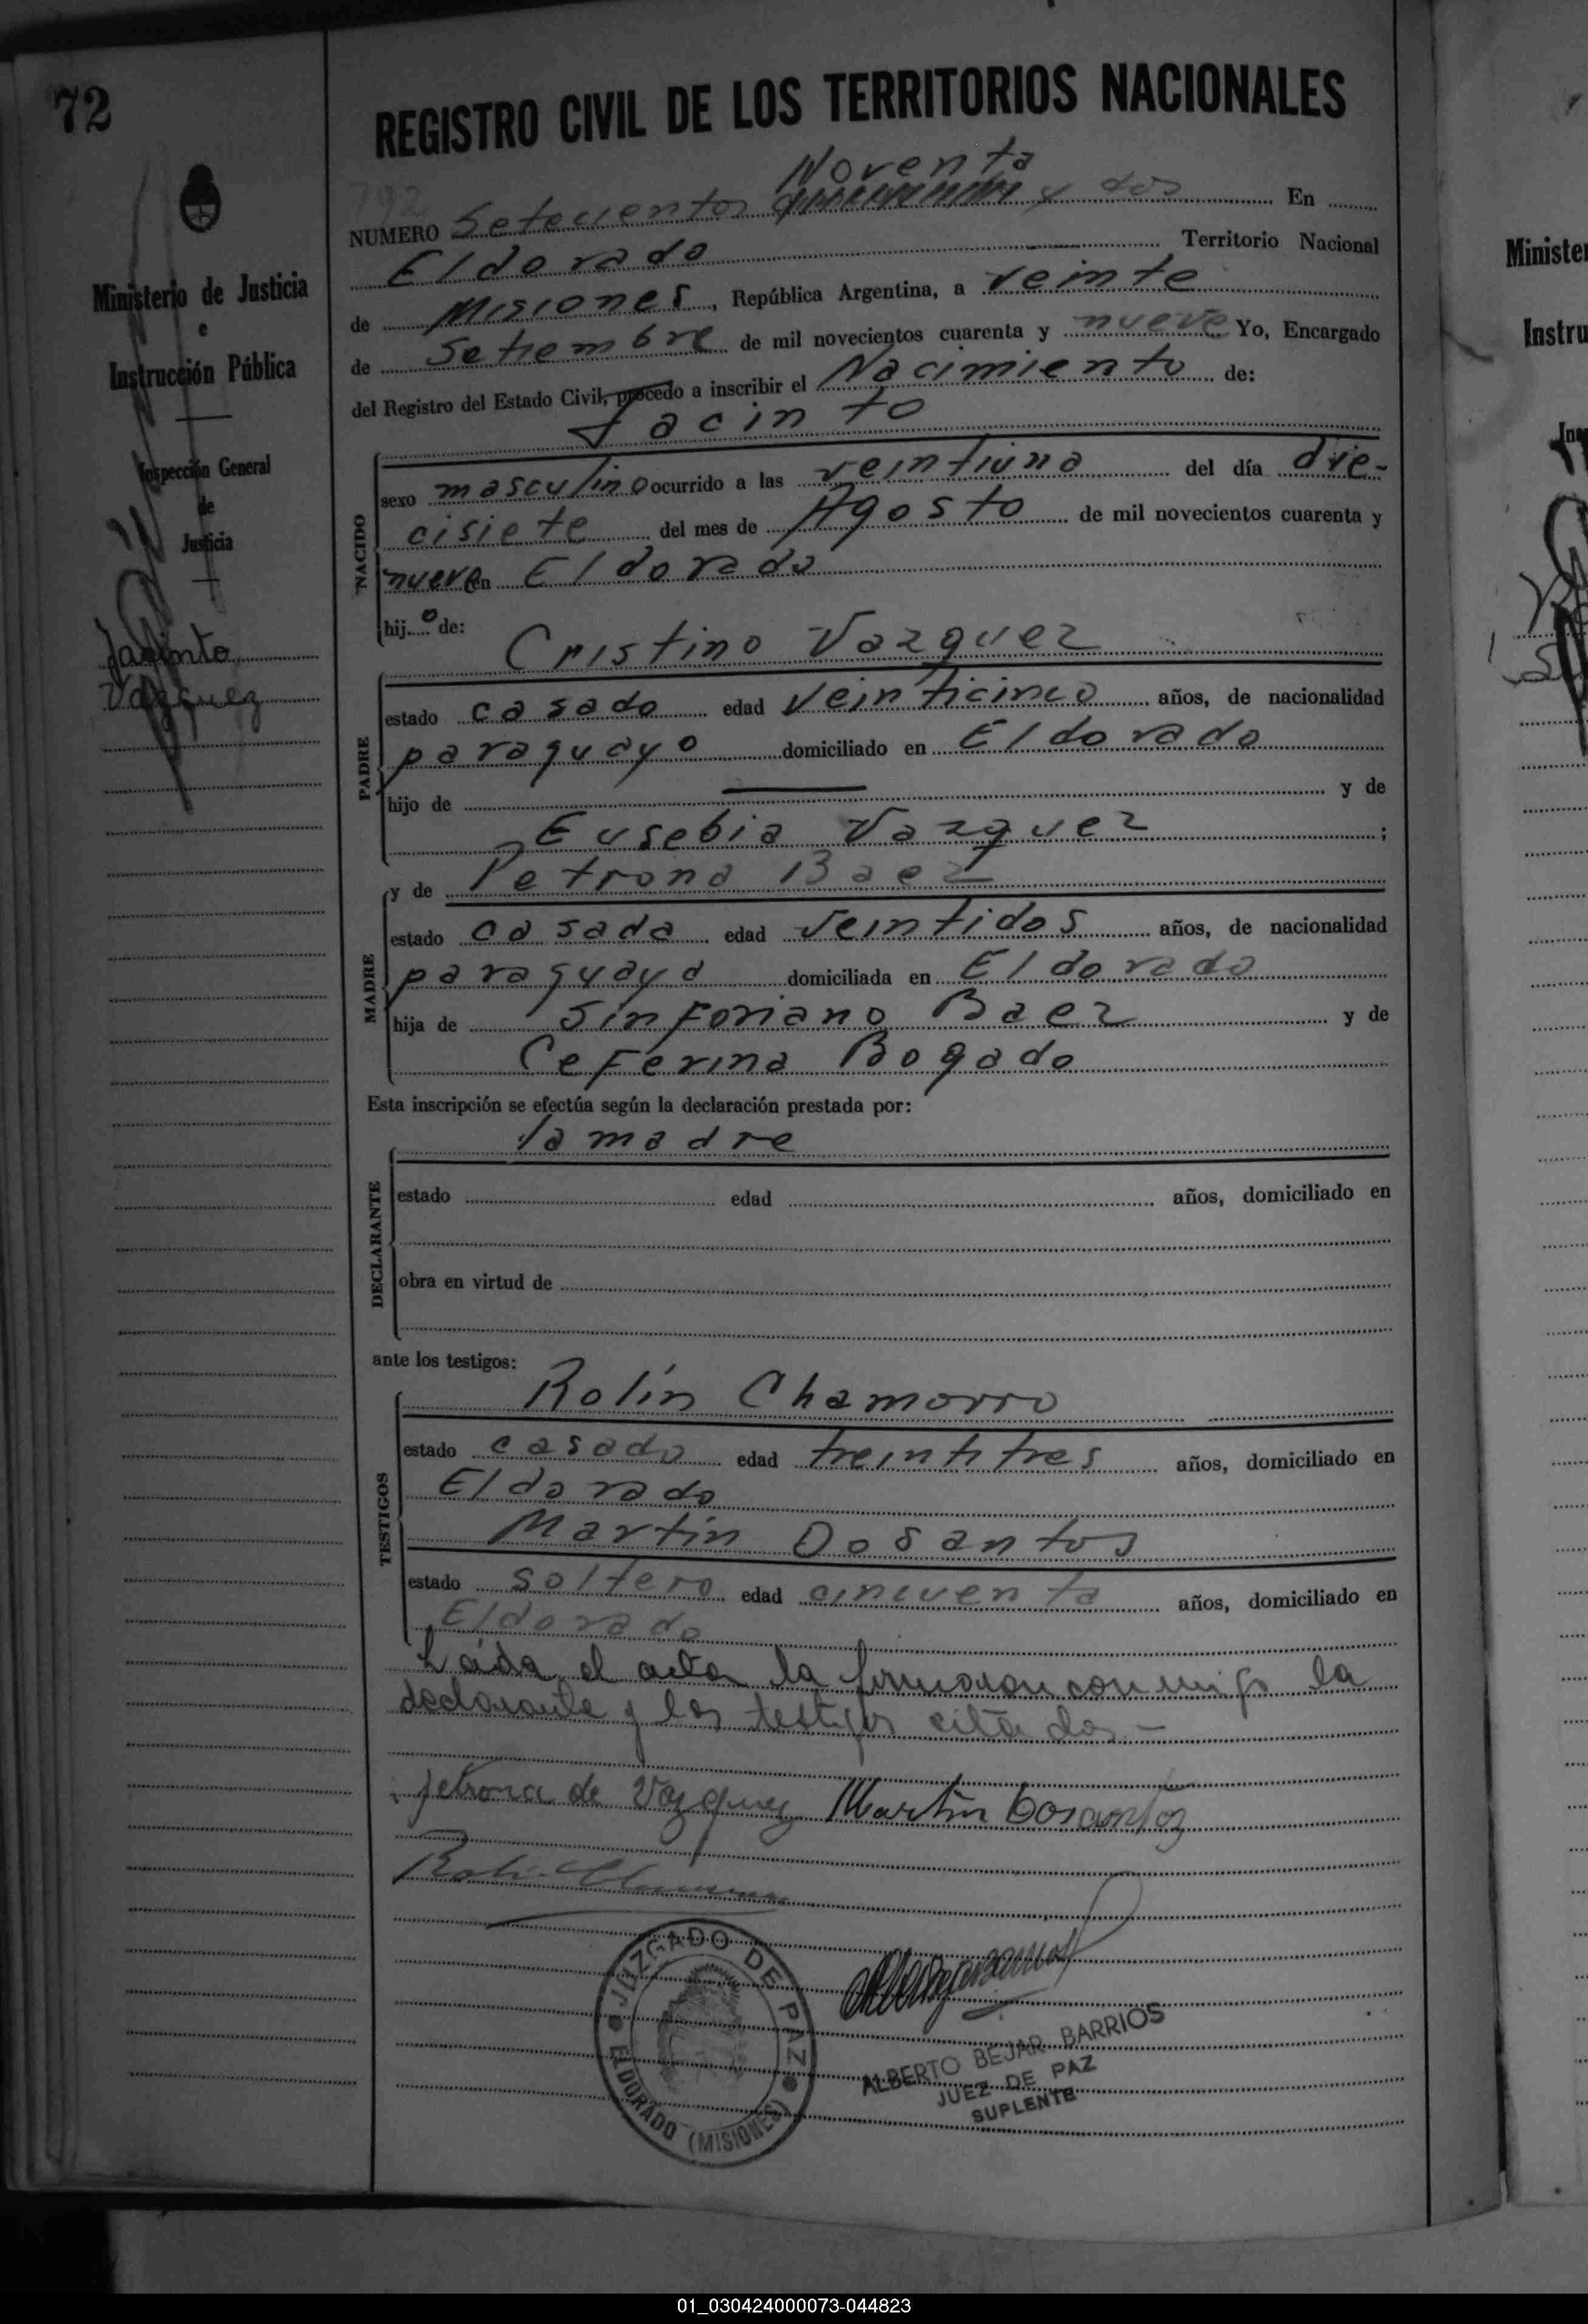 72
REGISTRO CIVIL DE LOS TERRITORIOS NACIONALES
792
Noventa
NUMERO Setecientos y dos En
Eldorado Territorio Nacional
de Misiones, República Argentina, a veinte
de Setiembre de mil novecientos cuarenta y nueve Yo, Encargado
del Registro del Estado Civil, procedo a inscribir el Nacimiento de:
Jacinto
NACIDO
sexo masculino ocurrido a las veintiuna del día die-
cisiete del mes de Agosto de mil novecientos cuarenta y
nueve en Eldorado
hijo de:
Cristino Vazquez
PADRE
estado casado edad veinticinco años, de nacionalidad
paraguayo domiciliado en Eldorado
hijo de — y de
Eusebia Vazquez ;
MADRE
y de Petrona Baez
estado casada edad veintidos años, de nacionalidad
paraguaya domiciliada en Eldorado
hija de Sinforiano Baez y de
Ceferina Bogado
Esta inscripción se efectúa según la declaración prestada por:
la madre
DECLARANTE
estado edad años, domiciliado en
obra en virtud de
ante los testigos:
TESTIGOS
Rolín Chamorro
estado casado edad treintitres años, domiciliado en
Eldorado
Martín Dosantos
estado soltero edad cincuenta años, domiciliado en
Eldorado
Leída el acta la firmaron conmigo la
declarante y los testigos citados.—
petrona de Vazquez Martin Dosantos
Rolin Chamorro
JUZGADO DE PAZ
ELDORADO (MISIONES)
ALBERTO BEJAR BARRIOS
JUEZ DE PAZ
SUPLENTE
Ministerio de Justicia
e
Instrucción Pública
Inspección General
de
Justicia
Jacinto
Vazquez
Minister
Instru
01_030424000073-044823